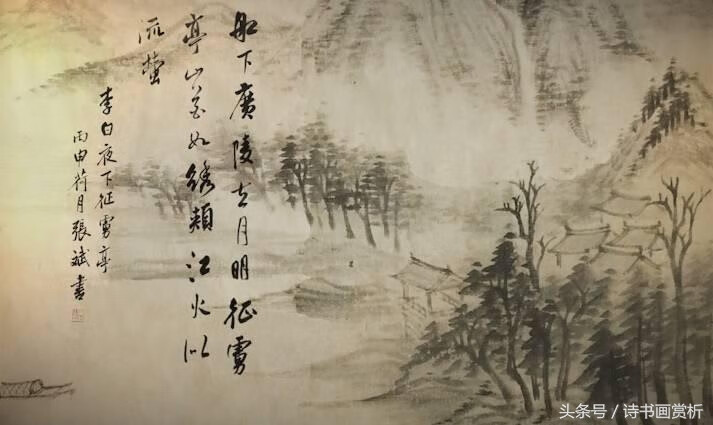 船下廣陵去月明征虜
亭山花如绣頰江火似
流萤
李白夜下征虜亭
丙申荷月張斌書
头条号 / 诗书画赏析